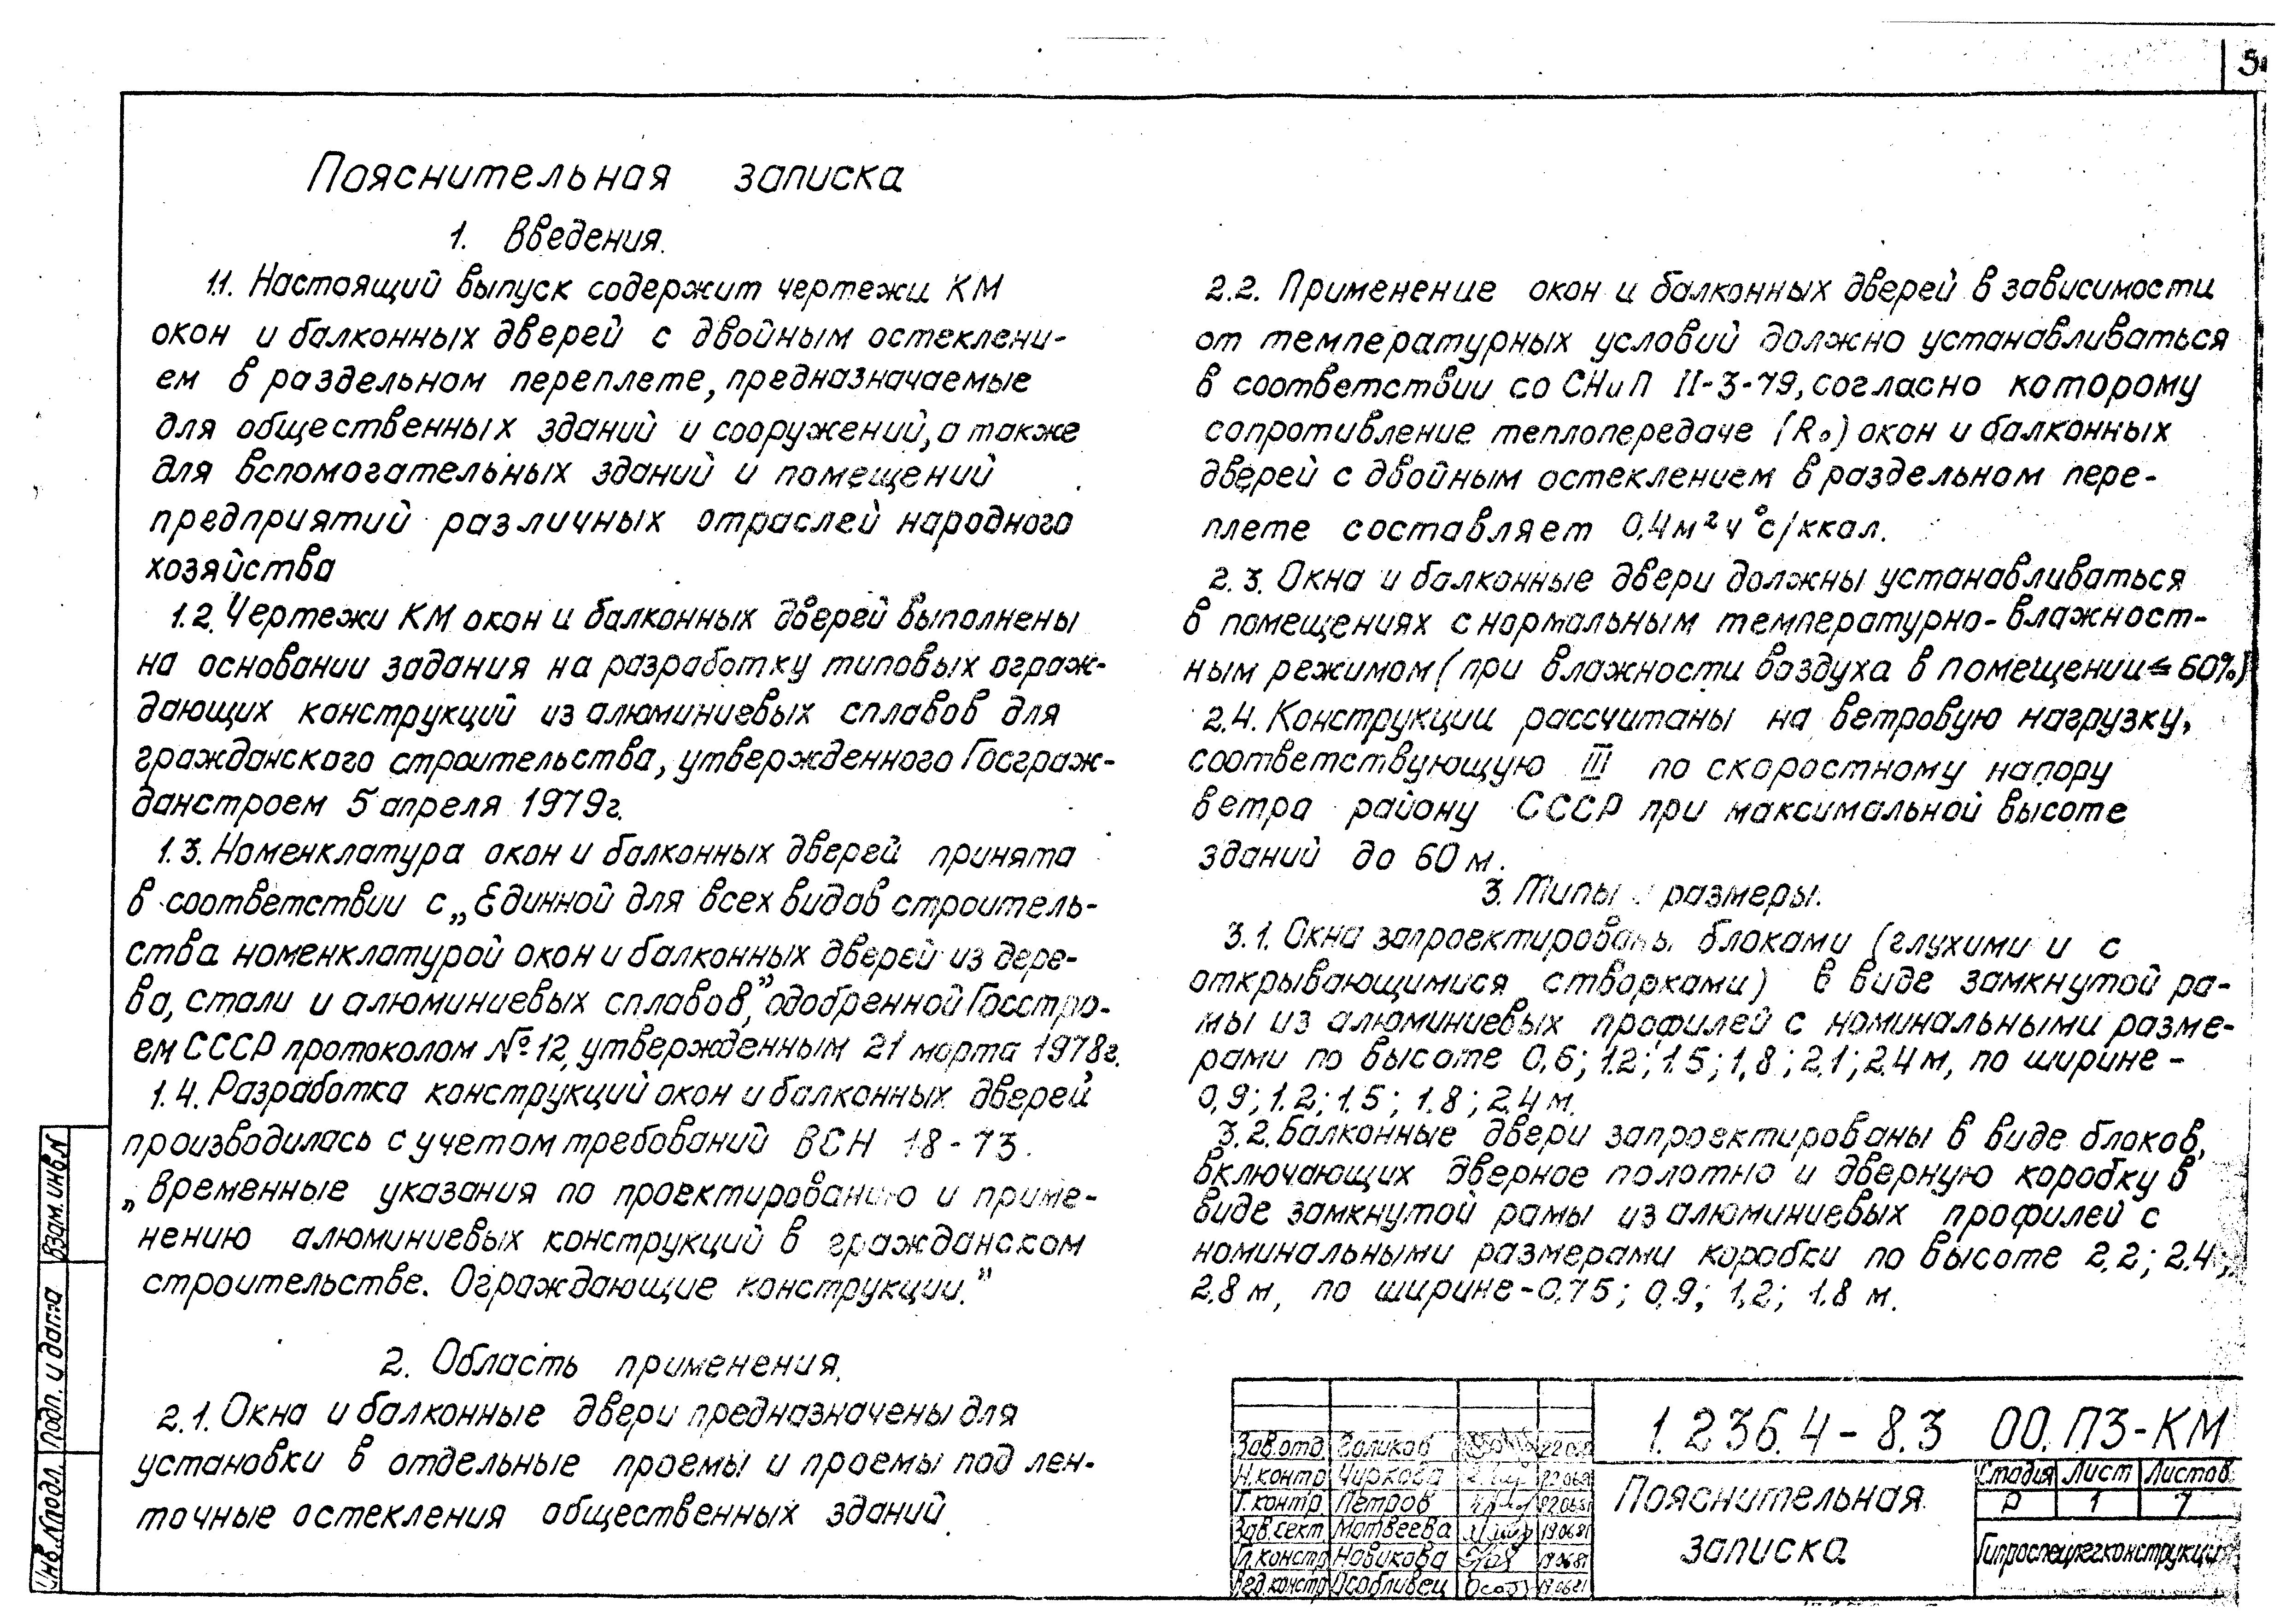 5
Пояснительная записка
1. Введения.
1.1. Настоящий выпуск содержит чертежи КМ
окон и балконных дверей с двойным остеклени-
ем в раздельном переплете, предназначаемые
для общественных зданий и сооружений, а также
для вспомогательных зданий и помещений
предприятий различных отраслей народного
хозяйства
1.2. Чертежи КМ окон и балконных дверей выполнены
на основании задания на разработку типовых ограж-
дающих конструкций из алюминиевых сплавов для
гражданского строительства, утвержденного Госграж-
данстроем 5 апреля 1979г.
1.3. Номенклатура окон и балконных дверей принята
в соответствии с „Единной для всех видов строитель-
ства номенклатурой окон и балконных дверей из дере-
ва, стали и алюминиевых сплавов," одобренной Госстро-
ем СССР протоколом №12, утвержденным 21 марта 1978г.
1.4. Разработка конструкций окон и балконных дверей
производилась с учетом требований ВСН 18-73.
„Временные указания по проектированию и приме-
нению алюминиевых конструкций в гражданском
строительстве. Ограждающие конструкции."
2. Область применения.
2.1. Окна и балконные двери предназначены для
установки в отдельные проемы и проемы под лен-
точные остекления общественных зданий.
2.2. Применение окон и балконных дверей в зависимости
от температурных условий должно устанавливаться
в соответствии со СНиП II-3-79, согласно которому
сопротивление теплопередаче (R₀) окон и балконных
дверей с двойным остеклением в раздельном пере-
плете составляет 0,4 м² ч °С/ккал.
2.3. Окна и балконные двери должны устанавливаться
в помещениях с нормальным температурно-влажност-
ным режимом (при влажности воздуха в помещении ≤ 60%)
2.4. Конструкции рассчитаны на ветровую нагрузку,
соответствующую III по скоростному напору
ветра району СССР при максимальной высоте
зданий до 60 м.
3. Типы и размеры.
3.1. Окна запроектированы блоками (глухими и с
открывающимися створками) в виде замкнутой ра-
мы из алюминиевых профилей с номинальными разме-
рами по высоте 0,6; 1.2; 1.5; 1,8; 2,1; 2.4 м, по ширине -
0,9; 1.2; 1.5; 1.8; 2.4 м.
3.2. Балконные двери запроектированы в виде блоков,
включающих дверное полотно и дверную коробку в
виде замкнутой рамы из алюминиевых профилей с
номинальными размерами коробки по высоте 2,2; 2.4;
2.8 м, по ширине - 0.75; 0,9; 1,2; 1.8 м.
Взам. инв.N
Подп. и дата
Инв.N подл.
Зав.отд. Голиков
Н.контр. Чиркова
Т.контр. Петров
Зав.сект. Матвеева 19.06.81
Гл.констр. Новикова 19.06.81
Вед.констр. Особливец 19.06.81
1.236.4-8.3 00.ПЗ-КМ
Пояснительная
записка
Стадия Лист Листов
Р 1 7
Гипроспецлегконструкция